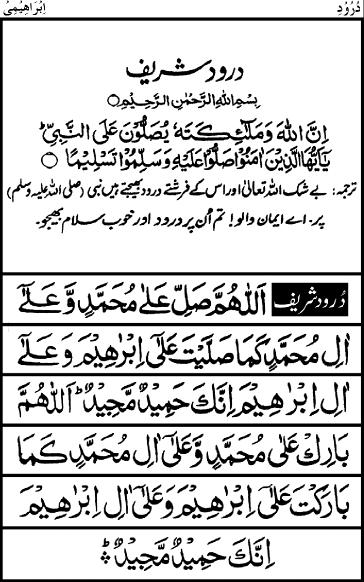 دُرُوْدِ اِبْرَاهِیْمِیْ
درود شریف
بِسْمِ اللهِ الرَّحْمٰنِ الرَّحِيْمِ○
اِنَّ اللهَ وَمَلٰٓئِكَتَهٗ يُصَلُّوْنَ عَلَى النَّبِيِّ ؕ
يٰٓاَيُّهَا الَّذِيْنَ اٰمَنُوْا صَلُّوْا عَلَيْهِ وَسَلِّمُوْا تَسْلِيْمًا ○
ترجمہ: بے شک اللہ تعالیٰ اور اس کے فرشتے درود بھیجتے ہیں نبی (صلی اللہ علیہ وسلم)
پر۔ اے ایمان والو! تم اُن پر درود اور خوب سلام بھیجو۔
درود شریف اَللّٰهُمَّ صَلِّ عَلٰى مُحَمَّدٍ وَّ عَلٰٓى
اٰلِ مُحَمَّدٍ كَمَا صَلَّيْتَ عَلٰٓى اِبْرٰهِيْمَ وَ عَلٰٓى
اٰلِ اِبْرٰهِيْمَ اِنَّكَ حَمِيْدٌ مَّجِيْدٌ ؕ اَللّٰهُمَّ
بَارِكْ عَلٰى مُحَمَّدٍ وَّ عَلٰٓى اٰلِ مُحَمَّدٍ كَمَا
بَارَكْتَ عَلٰٓى اِبْرٰهِيْمَ وَ عَلٰٓى اٰلِ اِبْرٰهِيْمَ
اِنَّكَ حَمِيْدٌ مَّجِيْدٌ ؕ